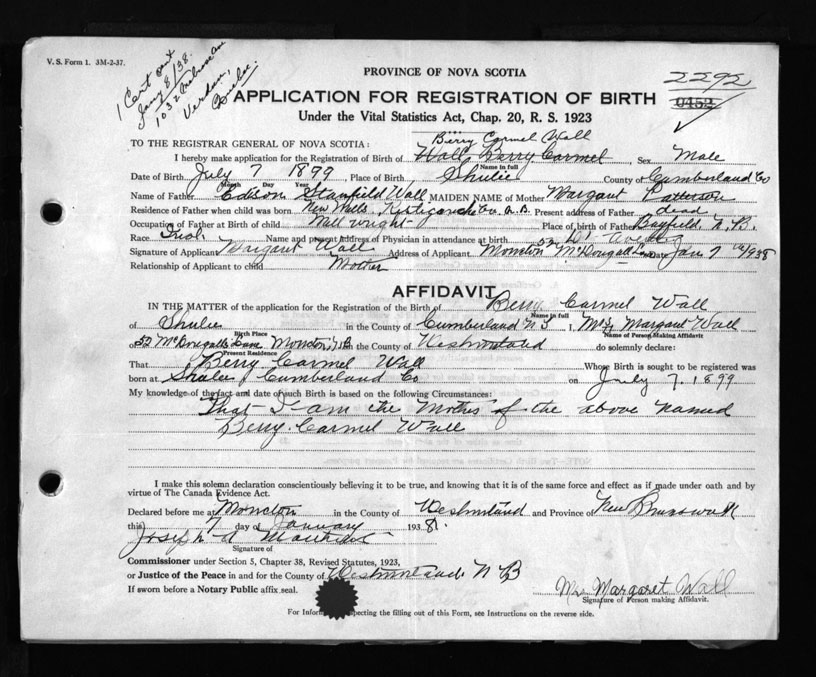 V. S. Form 1. 3M-2-37.
1 Cert sent
Jany 8/38.
1032
Verdun,
Quebec.
PROVINCE OF NOVA SCOTIA
2292
APPLICATION FOR REGISTRATION OF BIRTH
0452
Under the Vital Statistics Act, Chap. 20, R. S. 1923
Berry Carmel Wall
TO THE REGISTRAR GENERAL OF NOVA SCOTIA:
I hereby make application for the Registration of Birth of Wall, Berry Carmel Sex Male
Name in full
Date of Birth July 7 1899 Place of Birth Shulie County of Cumberland Co
Month Day Year
Name of Father Edison Stanfield Wall MAIDEN NAME of Mother Margaret Patterson
Residence of Father when child was born New Mills, Restigouche Co. N.B. Present address of Father dead
Occupation of Father at Birth of child Mill wright Place of birth of Father Bayfield, N.B.
Race Name and present Address of Physician in attendance at birth Dr.
Signature of Applicant Margaret Wall Address of Applicant 52 McDougall Moncton Date Jan 7 1938
Relationship of Applicant to child Mother
AFFIDAVIT
IN THE MATTER of the application for the Registration of the Birth of Berry Carmel Wall
Name in full
of Shulie in the County of Cumberland N S I, Mrs Margaret Wall
Birth Place
Name of Person Making Affidavit
52 McDougall Moncton, N.B in the County of Westmorland do solemnly declare:
Present Residence
That Berry Carmel Wall Whose Birth is sought to be registered was
born at Shulie Cumberland Co on July 7. 1899
My knowledge of the fact and date of such Birth is based on the following Circumstances:
That I am the Mother of the above named
Berry Carmel Wall
I make this solemn declaration conscientiously believing it to be true, and knowing that it is of the same force and effect as if made under oath and by
virtue of The Canada Evidence Act.
Declared before me at Moncton in the County of Westmorland and Province of New Brunswick
this 7 day of January 1938.
Joseph A
Signature of
Commissioner under Section 5, Chapter 38, Revised Statutes, 1923,
or Justice of the Peace in and for the County of Westmorland N B
If sworn before a Notary Public affix seal.
Mrs Margaret Wall
Signature of Person making Affidavit.
For Infor respecting the filling out of this Form, see Instructions on the reverse side.